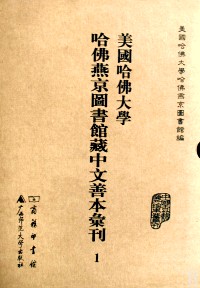 美國哈佛大學哈佛燕京圖書館編
美國哈佛大學
哈佛燕京圖書館藏中文善本彙刊
1
商務印書館
广西师范大学出版社